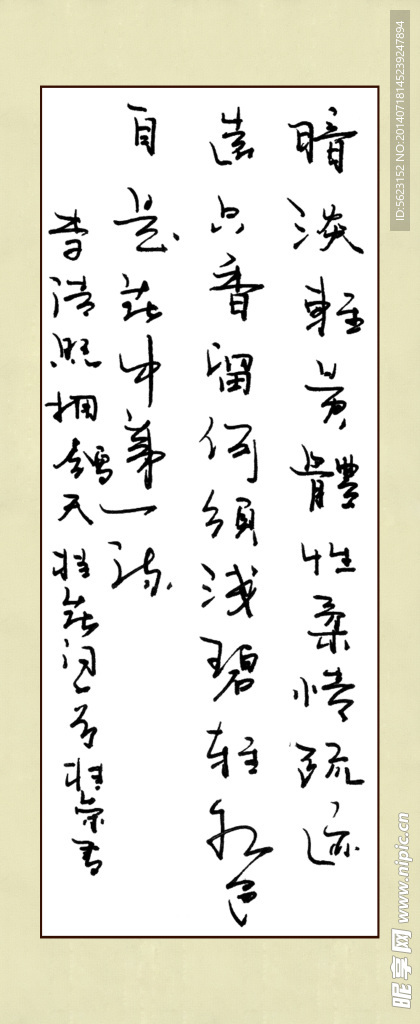 暗淡輕黃體性柔情疏迹
遠只香留何須淺碧輕紅色
自是花中第一流
李清照天桂花词桂荣書
ID:5623152 NO:20140718145239247894
昵享网 www.nipic.cn